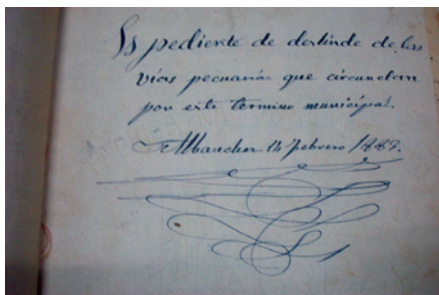 Espediente de deslinde de las
vías pecuarias que circundan
por este termino municipal.
Albanchez 14 Febrero 1889.